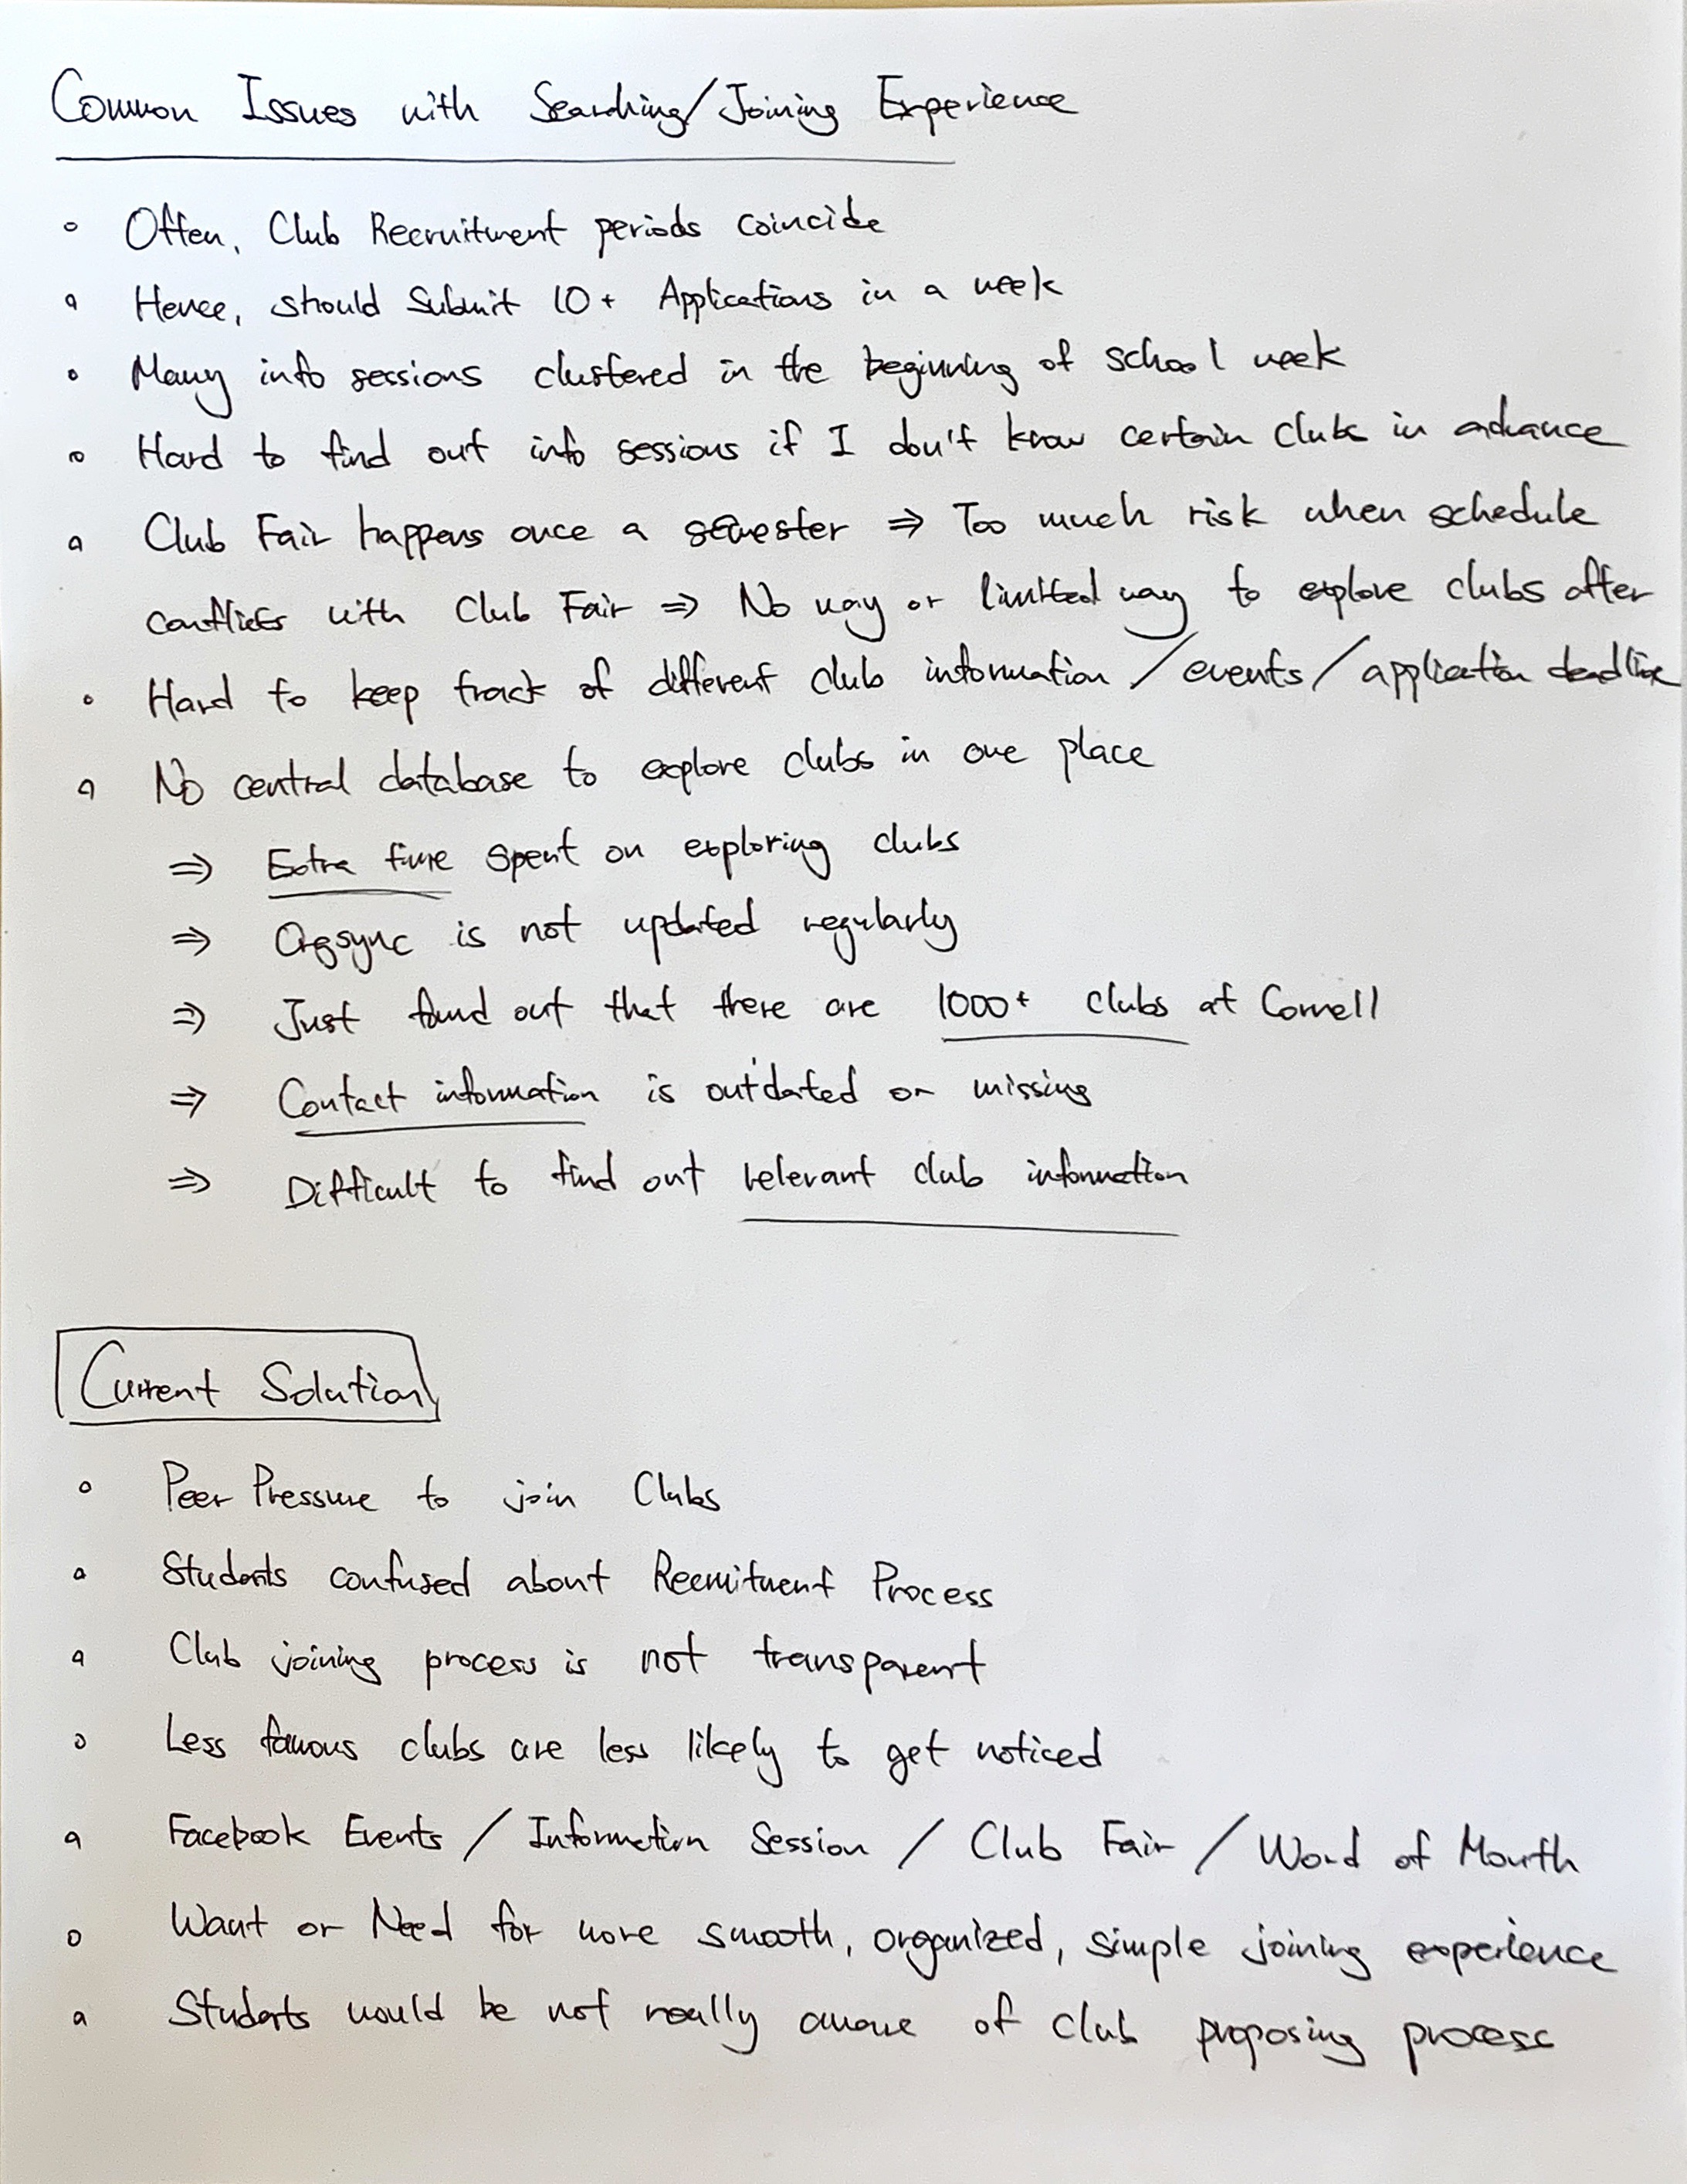 Common Issues with Searching/Joining Experience
◦ Often, Club Recruitment periods coincide
◦ Hence, should Submit 10+ Applications in a week
◦ Many info sessions clustered in the beginning of school week
◦ Hard to find out info sessions if I don't know certain clubs in advance
◦ Club Fair happens once a semester ⇒ Too much risk when schedule
conflicts with Club Fair ⇒ No way or limited way to explore clubs after
◦ Hard to keep track of different club information / events / application deadline
◦ No central database to explore clubs in one place
⇒ Extra time spent on exploring clubs
⇒ Orgsync is not updated regularly
⇒ Just found out that there are 1000+ clubs at Cornell
⇒ Contact information is outdated or missing
⇒ Difficult to find out relevant club information
Current Solution
◦ Peer Pressure to join Clubs
◦ Students confused about Recruitment Process
◦ Club joining process is not transparent
◦ Less famous clubs are less likely to get noticed
◦ Facebook Events / Information Session / Club Fair / Word of Mouth
◦ Want or Need for more smooth, organized, simple joining experience
◦ Students would be not really aware of club proposing process